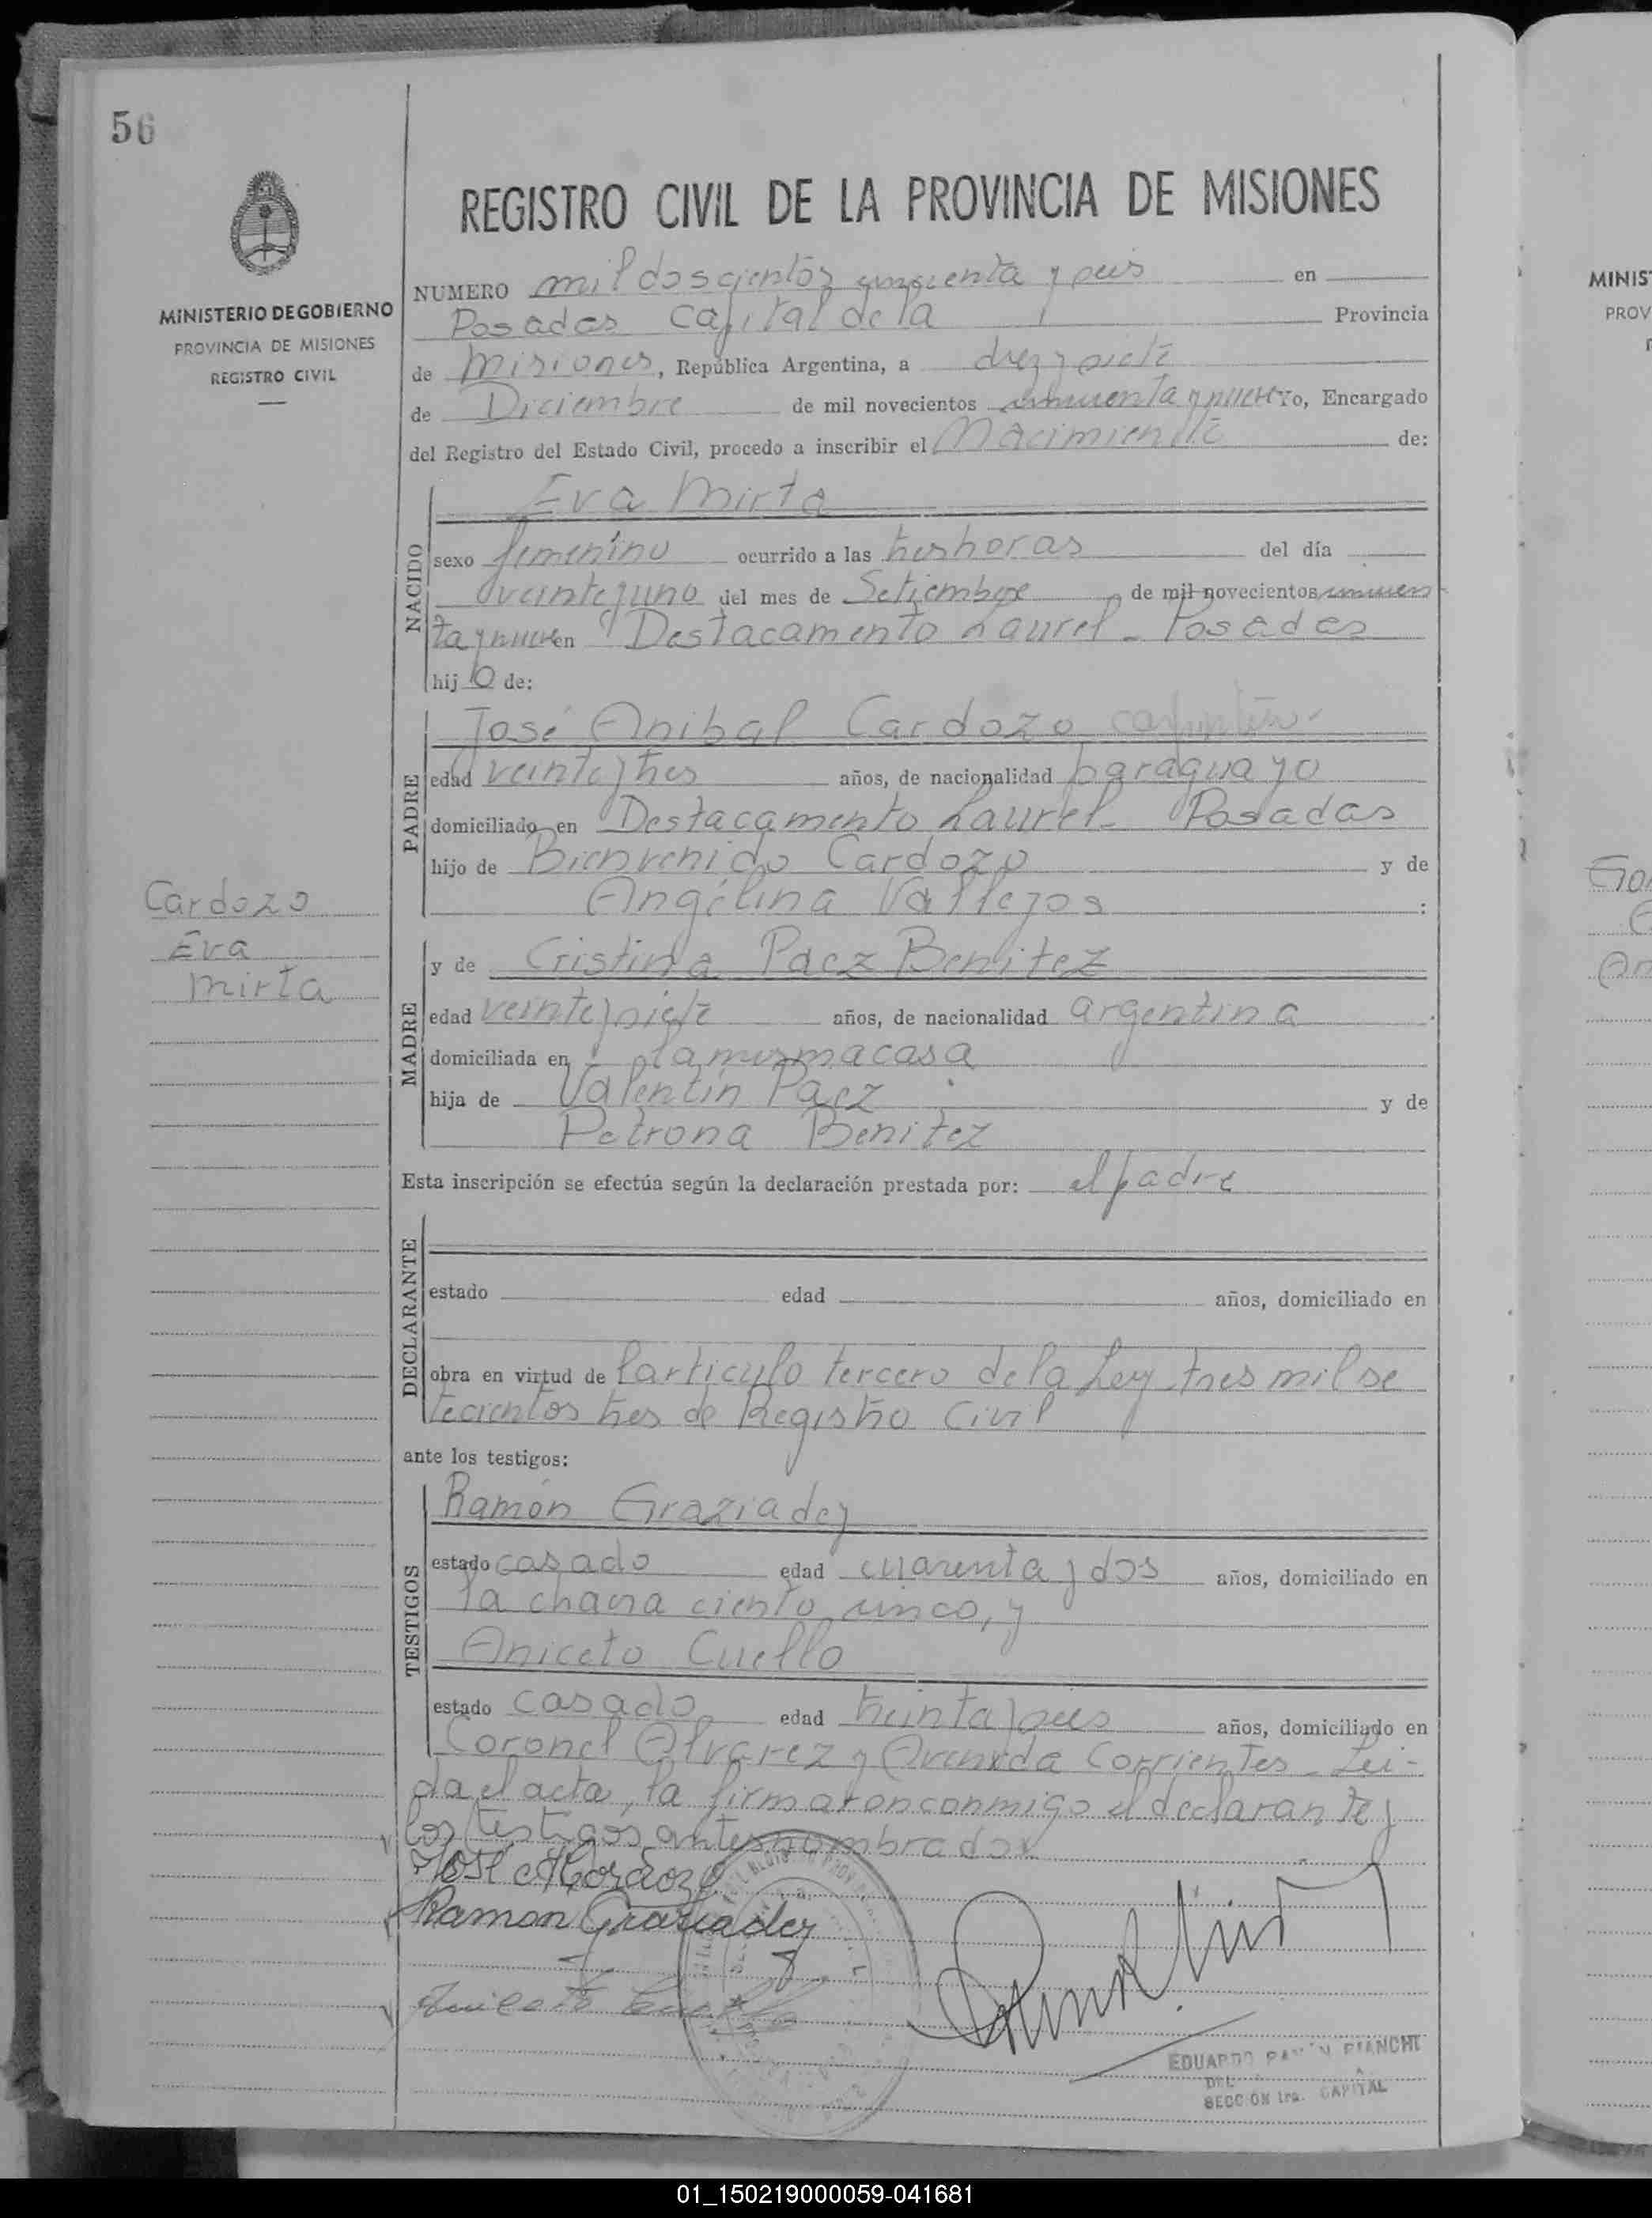 56
REGISTRO CIVIL DE LA PROVINCIA DE MISIONES
MINISTERIO DE GOBIERNO
PROVINCIA DE MISIONES
REGISTRO CIVIL
NUMERO mil doscientos cincuenta y seis en
Posadas Capital de la Provincia
de Misiones, República Argentina, a diez y siete
de Diciembre de mil novecientos cincuenta y nueve Yo, Encargado
del Registro del Estado Civil, procedo a inscribir el Nacimiento de:
NACIDO
Eva Mirta
sexo femenino ocurrido a las tres horas del día
veinte y uno del mes de Setiembre de mil novecientos cincuen
ta y nueve en Destacamento Laurel - Posadas
hij o de:
PADRE
José Anibal Cardozo
edad veinte y tres años, de nacionalidad paraguayo
domiciliado en Destacamento Laurel - Posadas
hijo de Bienvenido Cardozo y de
Angélina Vallejos :
Cardozo
Eva
Mirta
MADRE
y de Cristina Paez Benitez
edad veinte y siete años, de nacionalidad argentina
domiciliada en la misma casa
hija de Valentín Paez y de
Petrona Benitez
Esta inscripción se efectúa según la declaración prestada por: el padre
DECLARANTE
estado edad años, domiciliado en
obra en virtud de l'articulo tercero de la Ley tres mil se
tecientos tres de Registro Civil
ante los testigos:
TESTIGOS
Ramón Graziadey
estado casado edad cuarenta y dos años, domiciliado en
la chacra ciento cinco, y
Aniceto Cuello
estado casado edad treinta y seis años, domiciliado en
Coronel Alvarez y Avenida Corrientes - Lei-
da el acta, la firmaron conmigo el declarante y
los testigos antes nombrados
José A Cardozo
Ramon Graziadey
Aniceto Cuello
EDUARDO RAMÓN BIANCHI
DEL
SECCION 1ra. CAPITAL
MINIS
PROV
01_150219000059-041681